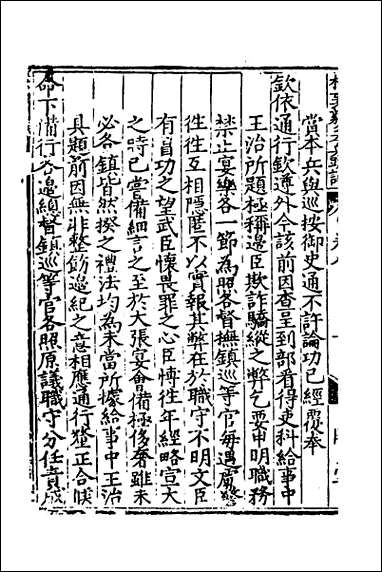 當本兵與巡按御史通不許論功已經覆奉
欽依通行欽遵外今該前因查呈到部看得吏科給事中
王治所題極稱邊臣欺詐驕縱之弊乞要申明職務
禁止宴樂各一節為照各督撫鎮巡等官每遇虜警
往往互相隱匿不以實報其弊在於職守不明文臣
有冒功之望武臣懷畏罪之心臣愽往年經略宣大
之時已嘗備細言之至於大張宴會備極侈奢雖未
必各鎮皆然揆之禮法均為未當所據給事中王治
具題前因無非整飭邊紀之意相應通行釐正合候
命下備行各邊總督鎮巡等官各照原議職守分任責成